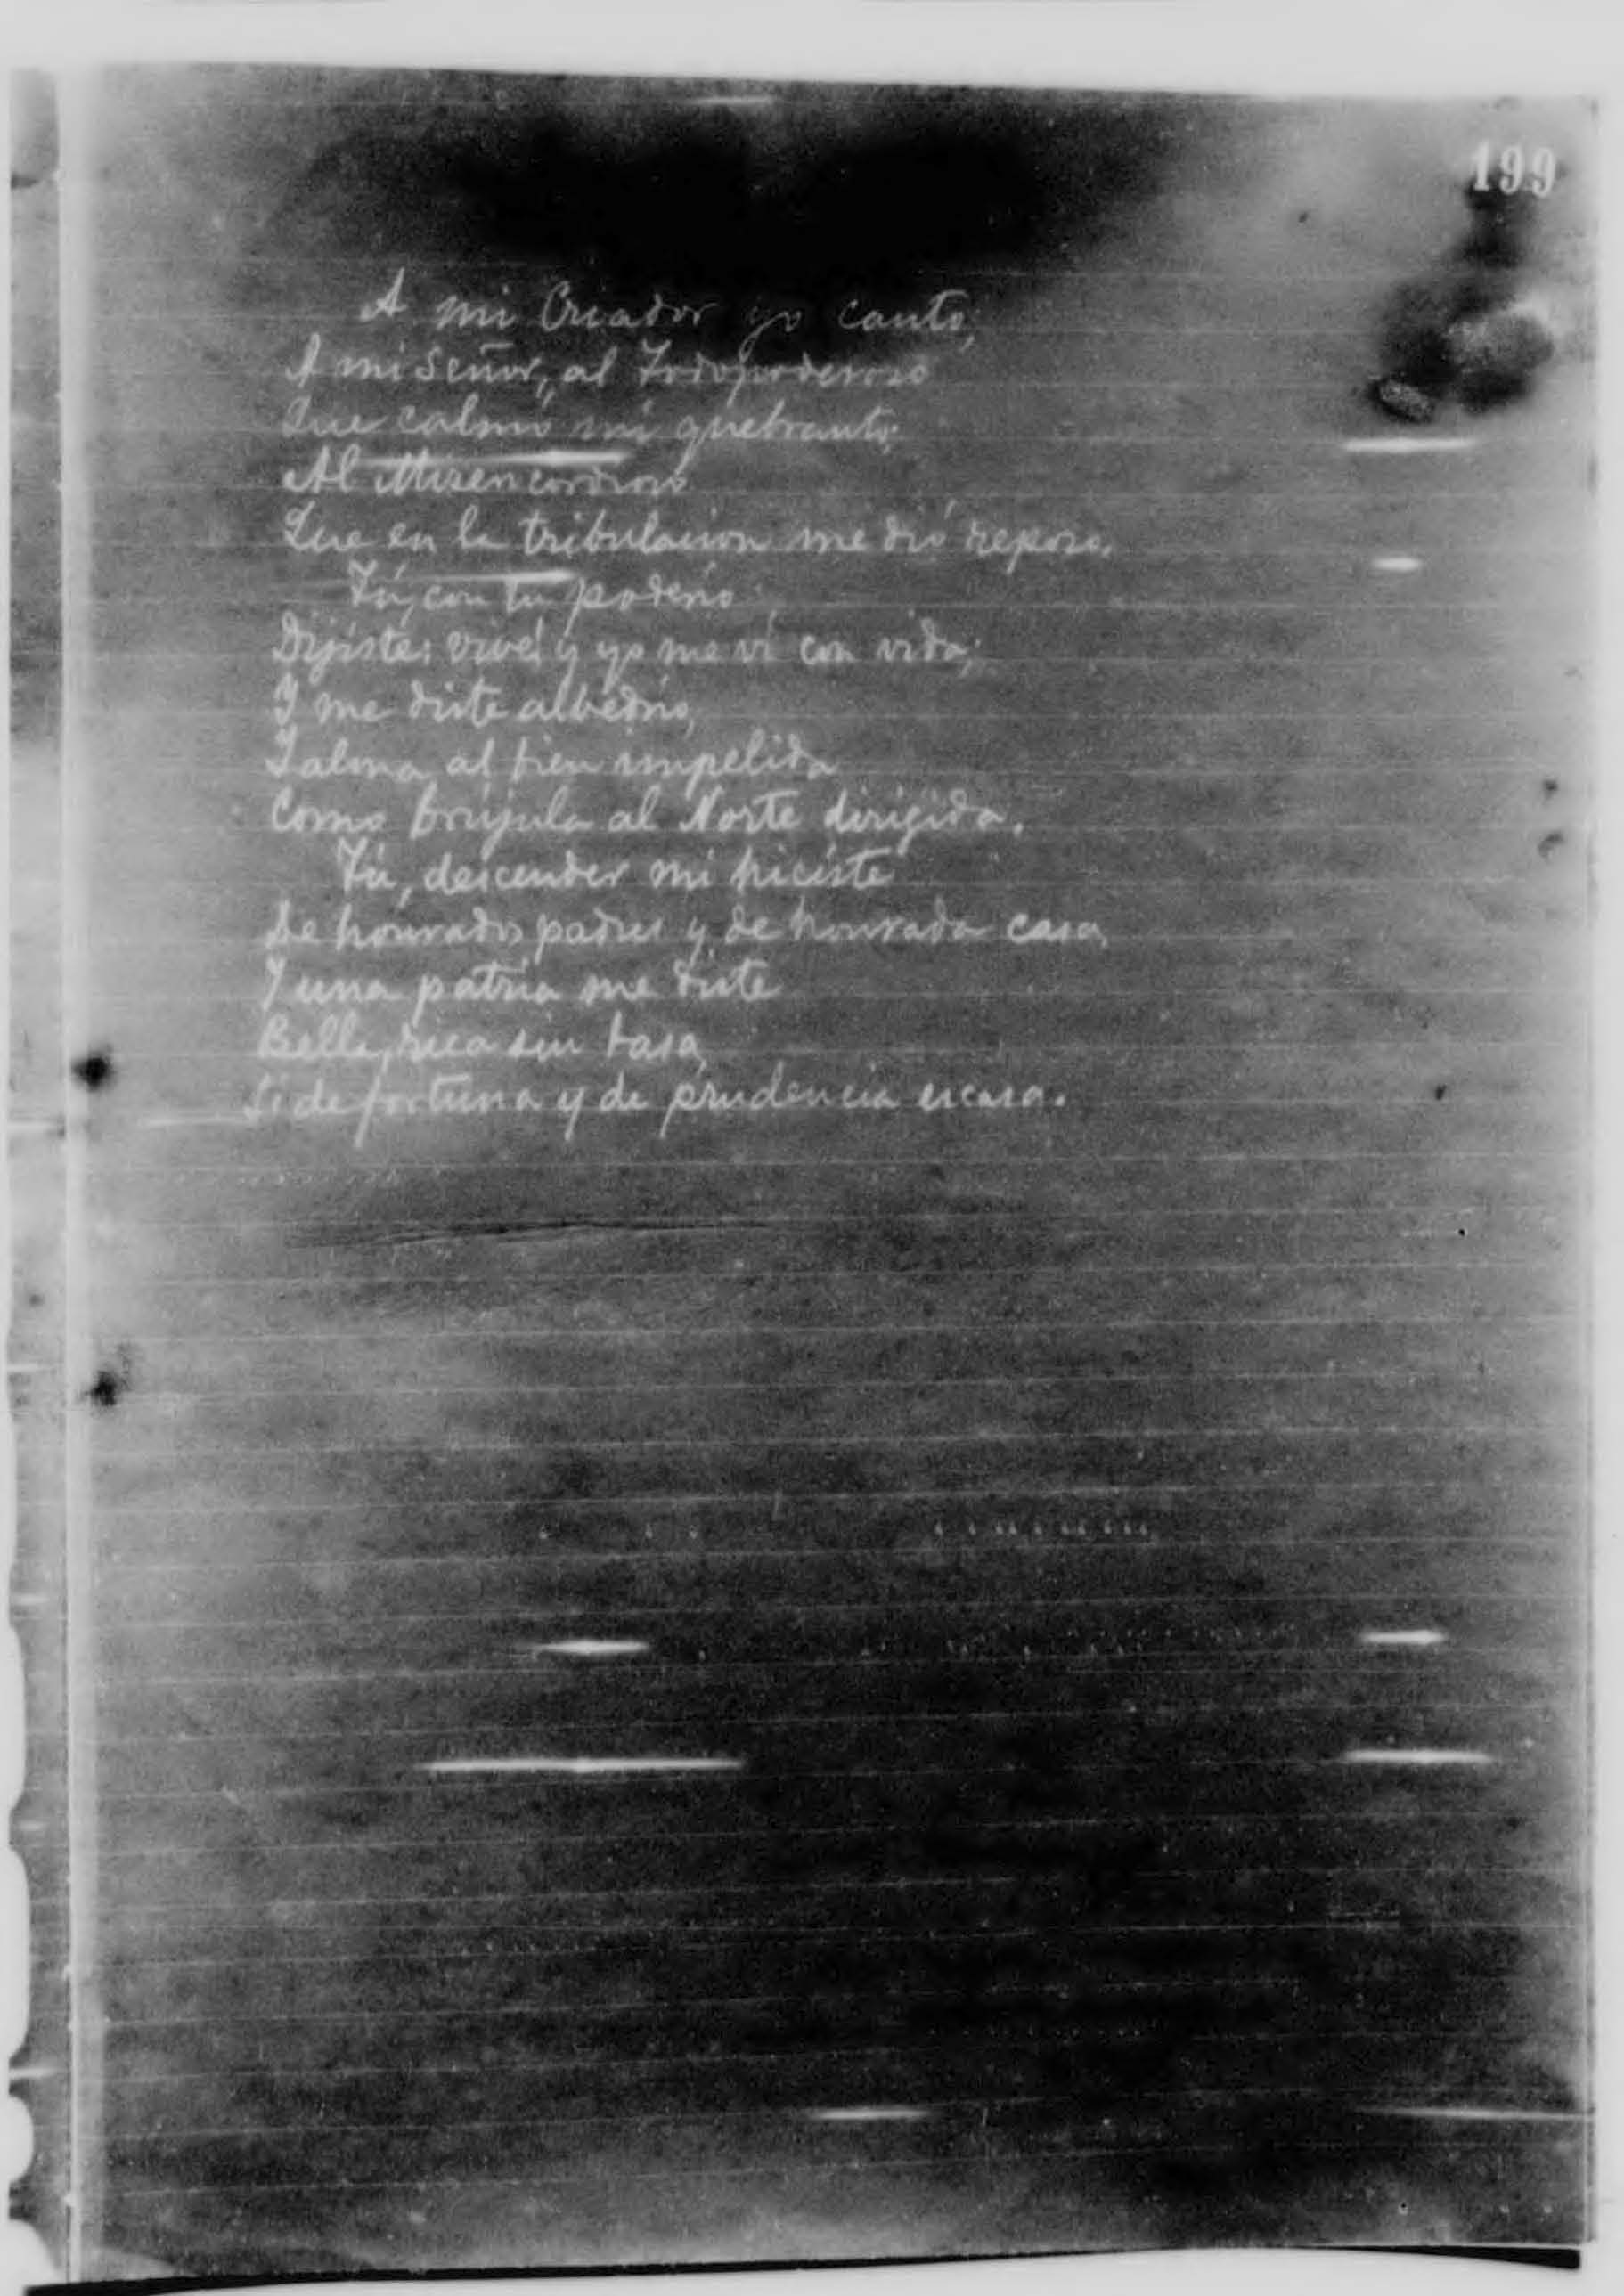 199
A mi Criador yo canto;
A mi Señor, al Todopoderoso
Que calmó mi quebranto;
Al Misericordioso
Que en la tribulacion me dió reposo.
Tú, con tu poderío
Dijiste: vive! y yo me ví con vida;
Y me diste albedrío,
Y alma al bien impelida
Como brújula al Norte dirigida.
Tú, descender mi hiciste
De honrados padres y de honrada casa,
Y una patria me diste
Bella, rica sin tasa,
Si de fortuna y de prudencia escasa.